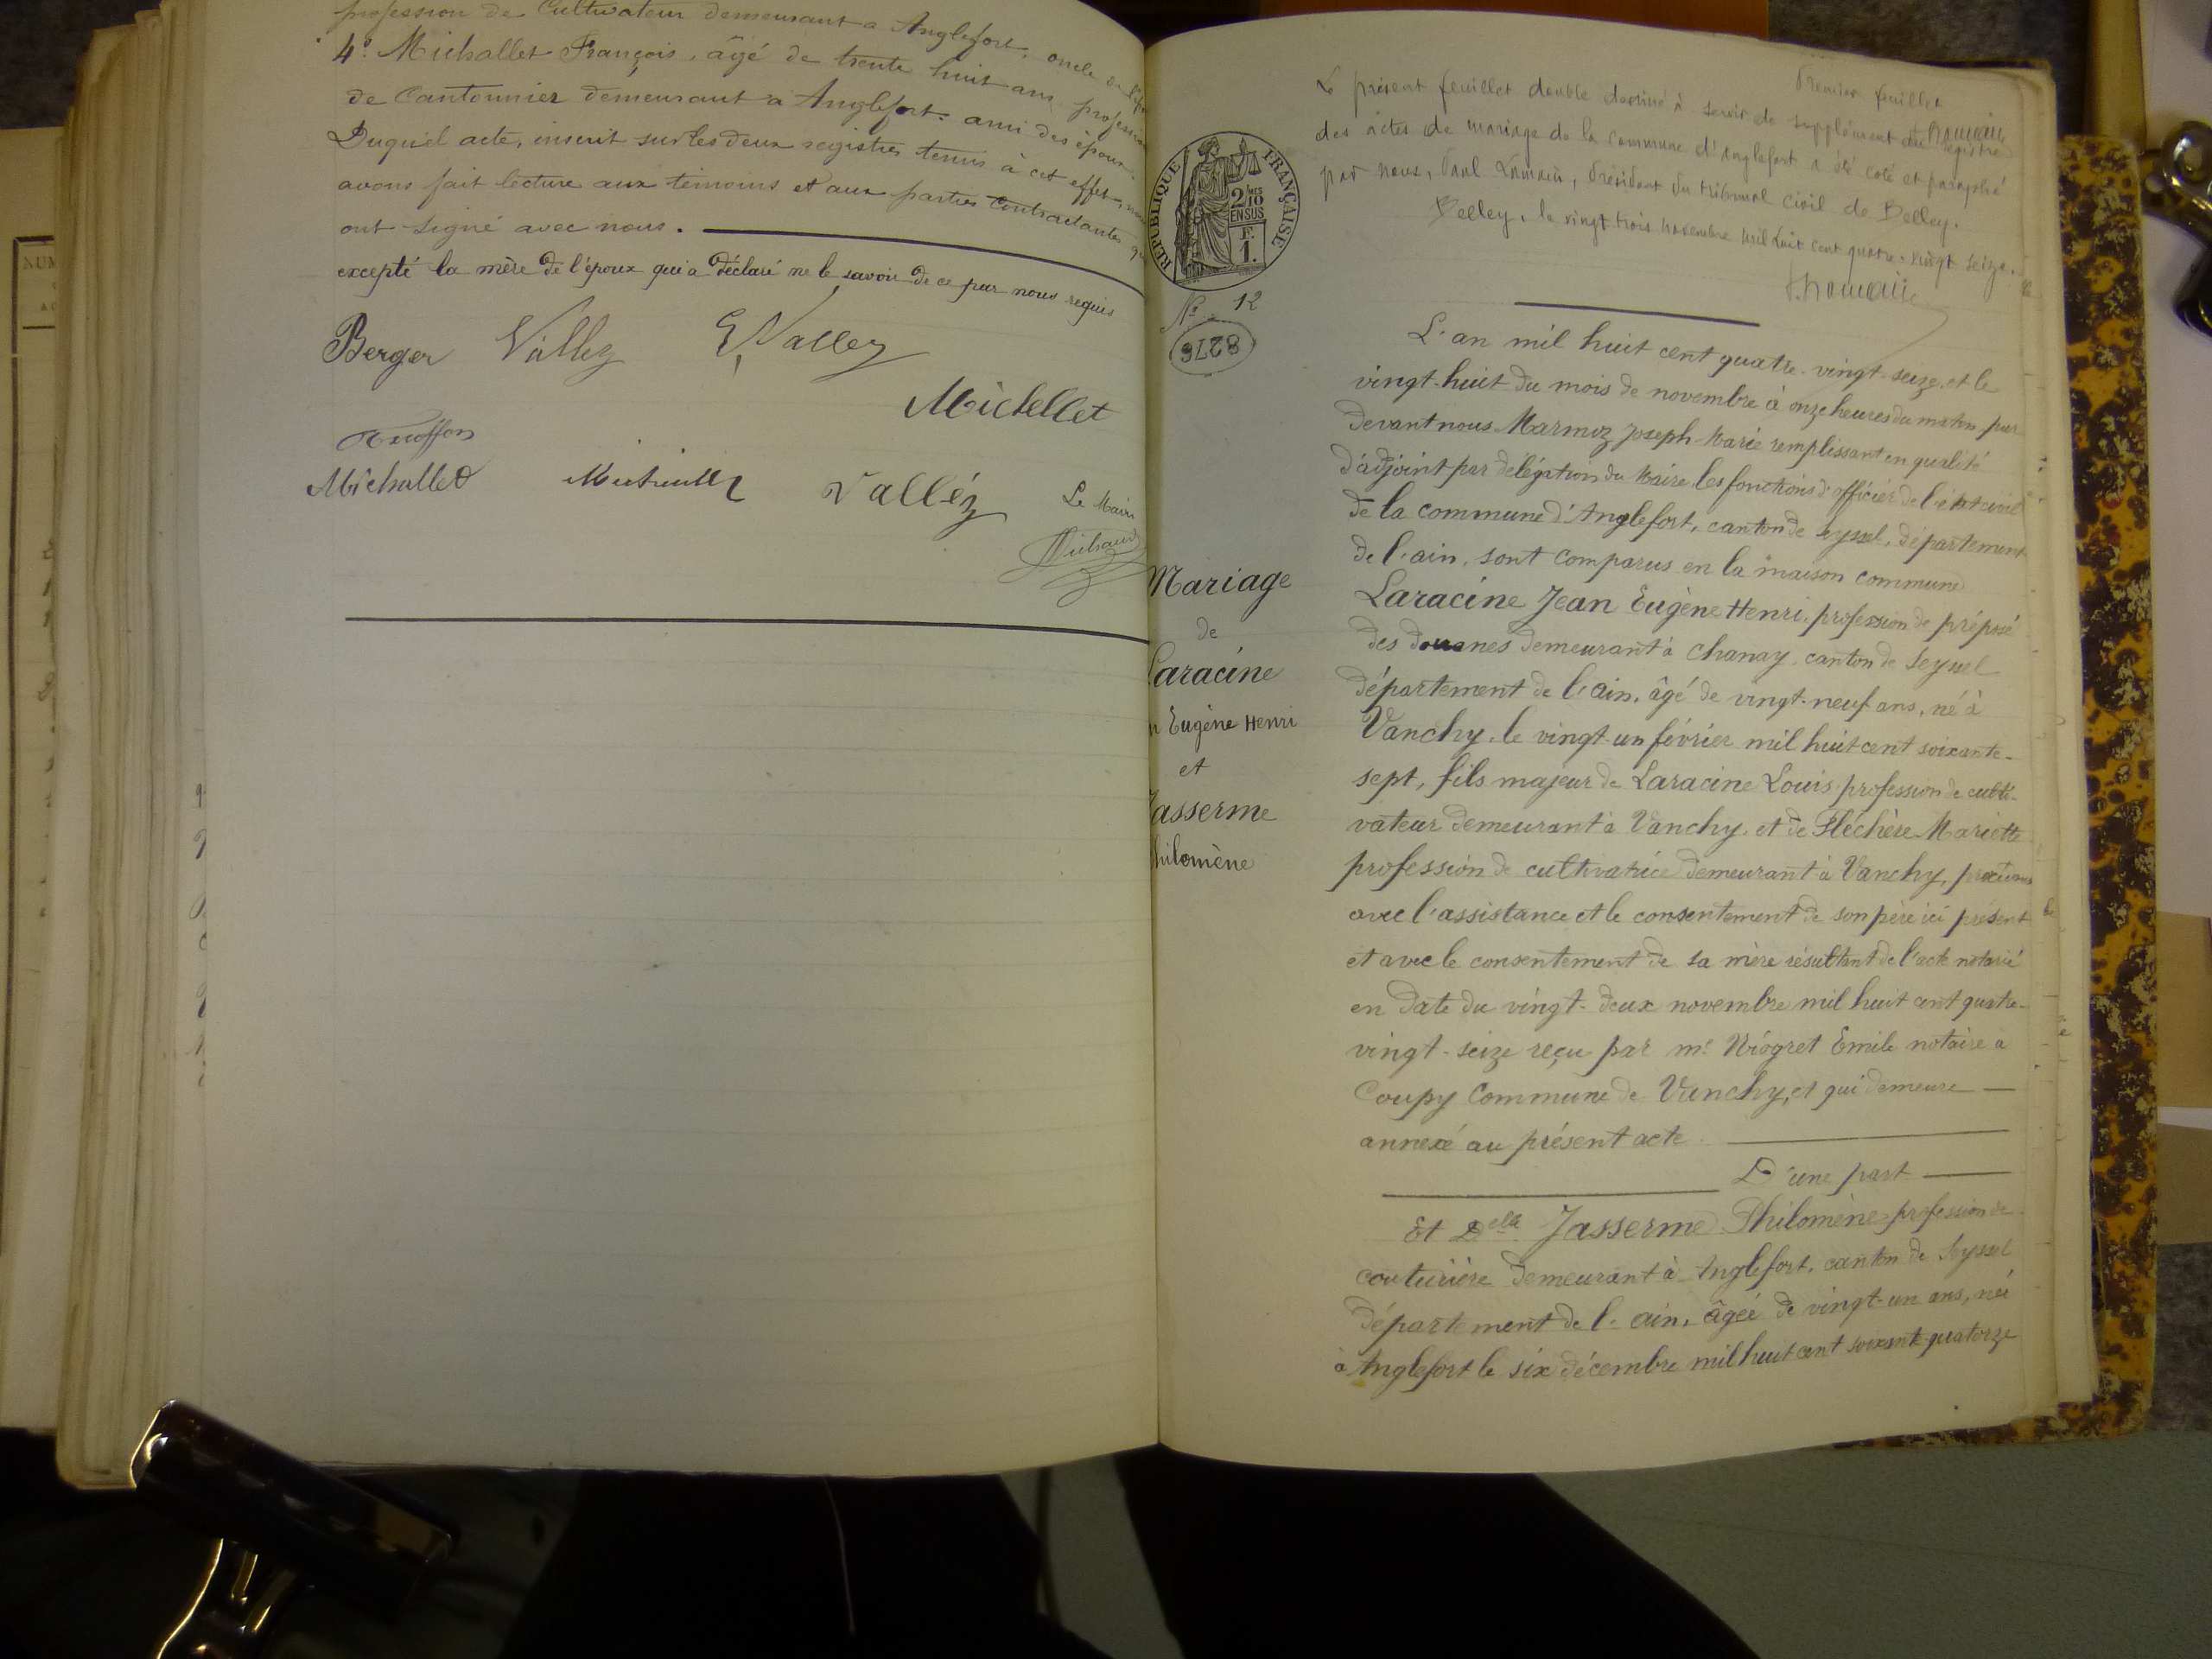 profession de Cultivateur demeurant a Anglefort, oncle de
4° Michallet François, âgé de trente huit ans, profession
de Cantonnier demeurant à Anglefort. ami des époux.
Duquel acte, inscrit sur les deux registres tenus à cet effet, nous
avons fait lecture aux témoins et aux parties contractantes qui
ont signé avec nous.
excepté la mère de l'époux qui a déclaré ne le savoir de ce par nous requis
Berger Vallez Vallez
Michellet
Truffon
Michallet Valléz Le Maire
NUM
Premier feuillet
Le présent feuillet double destiné à servir de supplément au registre
des actes de mariage de la commune d'Anglefort a été coté et paraphé
par nous, Paul, Président du tribunal civil de Belley.
Belley, le vingt trois novembre mil huit cent quatre-vingt seize.
RÉPUBLIQUE FRANÇAISE
2/10
EN SUS
F.
1.
N° 12
8276
Mariage
de
Laracine
n Eugène Henri
et
Jasserme
hilomène
L'an mil huit cent quatre-vingt-seize, et le
vingt-huit du mois de novembre à onze heures du matin, par
devant nous Marmoz Joseph-Marie remplissant en qualité
d'adjoint par délégation du Maire les fonctions d'officier de l'état civil
de la commune d'Anglefort, canton de Seyssel, département
de l'ain, sont comparus en la maison commune
Laracine Jean Eugène Henri, profession de préposé
des douanes demeurant à Chanay, canton de Seyssel
département de l'ain, âgé de vingt-neuf ans, né à
Vanchy, le vingt-un février mil huit cent soixante-
sept, fils majeur de Laracine Louis, profession de culti-
vateur demeurant à Vanchy, et de Fléchère Mariette
profession de cultivatrice demeurant à Vanchy,
avec l'assistance et le consentement de son père ici présent
et avec le consentement de sa mère résultant de l'acte notarié
en date du vingt-deux novembre mil huit cent quatre-
vingt-seize reçu par me Niogret Emile notaire à
Coupy Commune de Vanchy, et qui demeure
annexé au présent acte.
D'une part
Et Delle Jasserme Philomène profession de
couturière demeurant à Anglefort, canton de Seyssel
département de l'ain, âgée de vingt-un ans, née
à Anglefort le six décembre mil huit cent soixante-quatorze